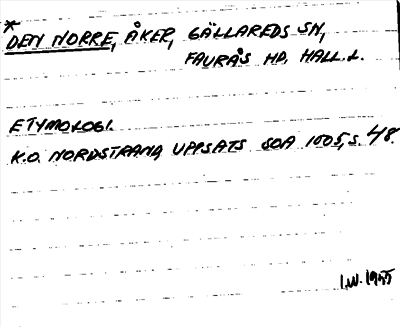 *
DEN NORRE, ÅKER, GÄLLAREDS SN,
FAURÅS HD, HALL.L.
ETYMOLOGI.
K.O. NORDSTRAND, UPPSATS SOA 1005, S. 48.
I.W. 1955